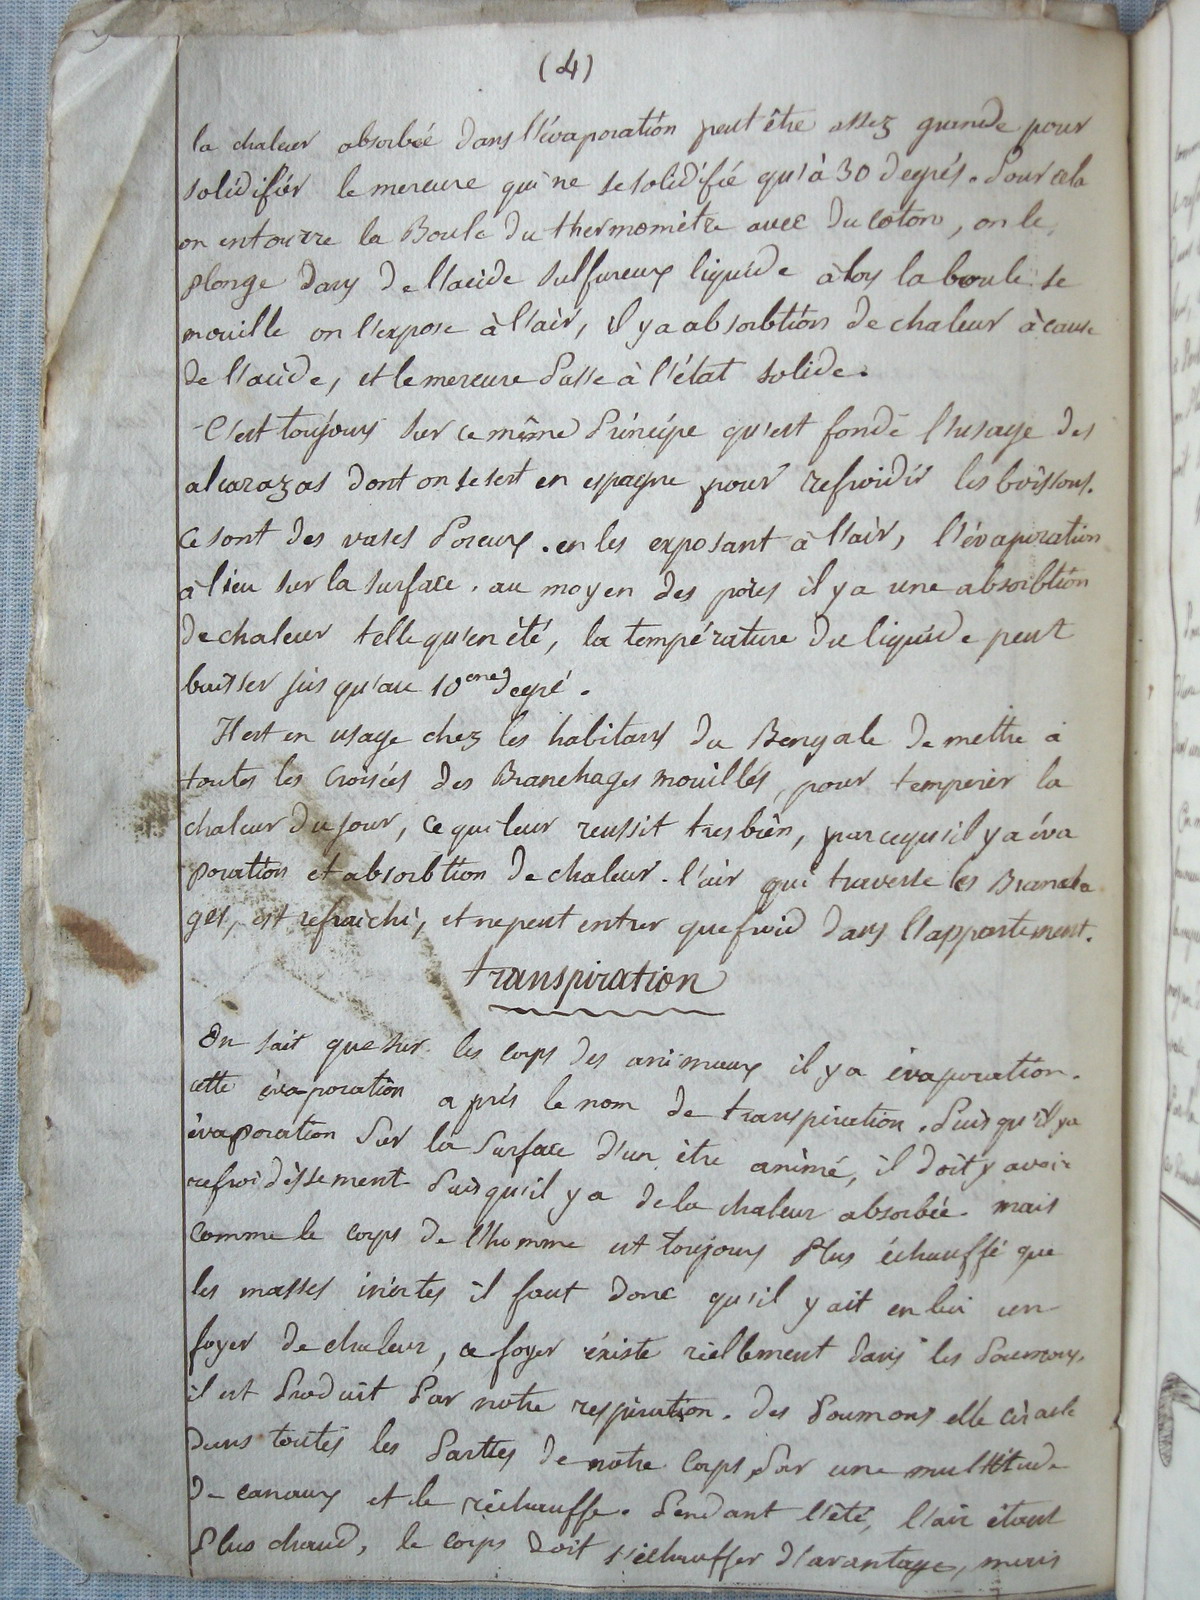 (4)
la chaleur absorbée dans l'évaporation peut être assez grande pour
solidifiér le mercure qui ne se solidifié qu'à 30 degrés. Pour cela
on entourre la Boule du thermomètre avec du coton, on le
plonge dans de l'acide sulfureux liquide àlors la boule se
mouille on l'expose à l'air, il y a absorbtion de chaleur à cause
de l'acide, et le mercure Passe à l'état solide.
C'est toujours sur ce même Principe qu'est fondé l'usage des
alcarazas dont on se sert en espagne pour refroidir les boissons.
ce sont des vases Poreux. en les exposant à l'air, l'évaporation
à lieu sur la surface. au moyen des pores il y a une absorbtion
de chaleur telle qu'en été, la température du liquide peut
baisser jusqu'au 10eme degré.
Il est en usage chez les habitans du Bengale de mettre à
toutes les Croisées des Branchages mouillés, pour temperer la
chaleur du jour, ce qui leur reussit tres bien, parcequ'il y a éva
poration et absorbtion de chaleur. l'air qui traverse les Brancha
ges, est refraichi, et ne peut entrer que froid dans l'appartement.
transpiration
On sait que sur les corps des animaux il y a évaporation.
cette évaporation a pris le nom de transpiration. Puisqu'il y a
évaporation Sur la Surface d'un être animé, il doit y avoir
refroidissement Puisqu'il y a de la chaleur absorbée. mais
comme le corps de l'homme est toujours Plus échauffé que
les masses inértes il faut donc qu'il y ait en lui un
foyer de chaleur, ce foyer éxiste réellement dans les Poumons,
il est Produit Par notre respiration. des Poumons elle circule
dans toutes les Parties de notre corps Par une multitude
de canaux et le réchauffe. Pendant l'été, l'air étant
Plus chaud, le corps doit s'échauffer d'avantage, mais